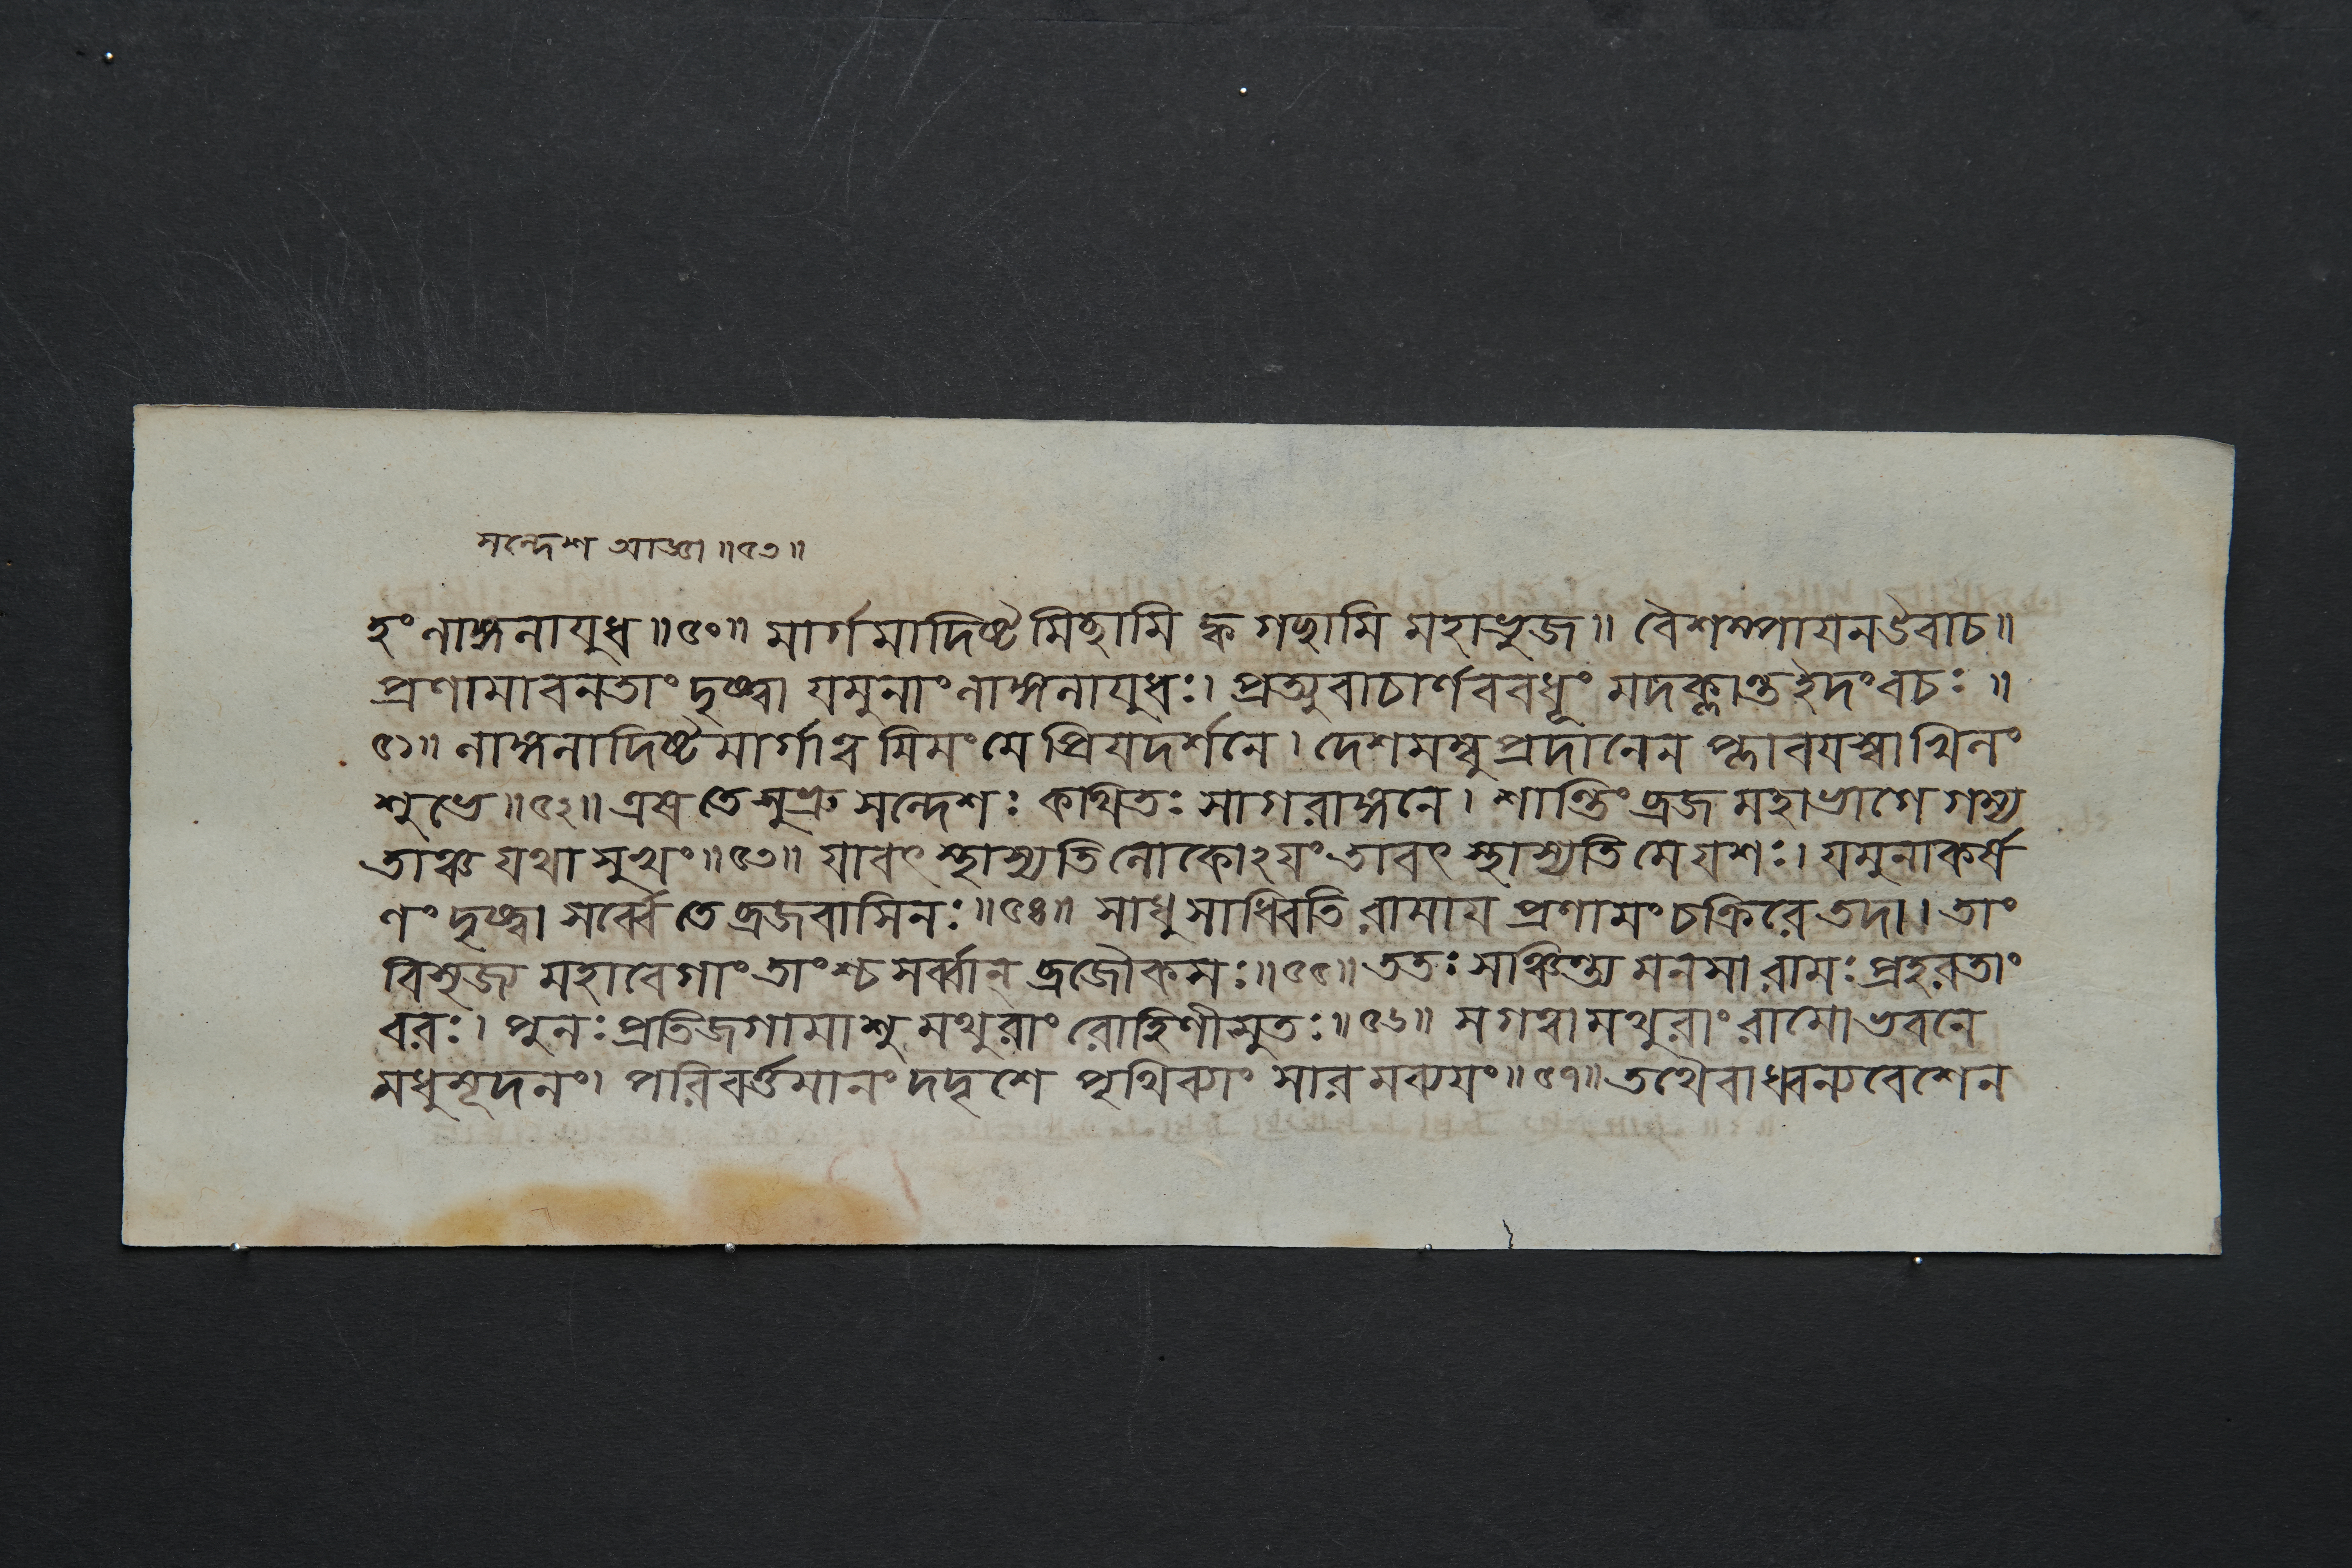 সন্দেশ আজ্ঞা ॥৫৩॥
হং লাঙ্গলাযুধ॥৫০॥ মার্গমাদিষ্টমিচ্ছামি ক্ক গচ্ছামি মহাভুজ॥ বৈশম্পাযনউবাচ॥
প্রণামাবনতাং দৃষ্ট্বা যমুনাং লাঙ্গলাযুধঃ। প্রত্যুবাচার্ণববধূং মদক্লান্তইদং বচঃ ॥
৫১॥ লাঙ্গলাদিষ্টমার্গাত্বমিমং মে প্রিযদর্শনে। দেশমম্বুপ্রদানেন প্লাবযস্বাখিলং
শুভে॥৫২॥ এষ তে সুভ্রু সন্দেশঃ কথিতঃ সাগরাঙ্গনে। শান্তিং ব্রজ মহাভাগে গম্য
তাঞ্চ যথা সুখং॥৫৩॥ যাবৎ স্থাস্যতি লোকোঽযং তাবৎ স্থাস্যতি মে যশঃ। যমুনাকর্ষ
ণং দৃষ্ট্বা সর্ব্বে তে ব্রজবাসিনঃ॥৫৪॥ সাধু সাধ্বিতি রামায প্রণামং চক্রিরে তদা। তাং
বিসৃজ্য মহাবেগাং তাংশ্চ সর্ব্বান্ ব্রজৌকসঃ॥৫৫॥ ততঃ সঞ্চিন্ত্য মনসা রামঃ প্রহরতাং
বরঃ। পুনঃ প্রতিজগামাশু মথুরাং রোহিণীসুতঃ॥৫৬॥ স গত্বা মথুরাং রামো ভবনে
মধুসূদনং। পরিবর্ত্তমানং দদৃশে পৃথিব্যাং সারমব্যযং॥৫৭॥ তথৈবাধ্বন্যবেশেন